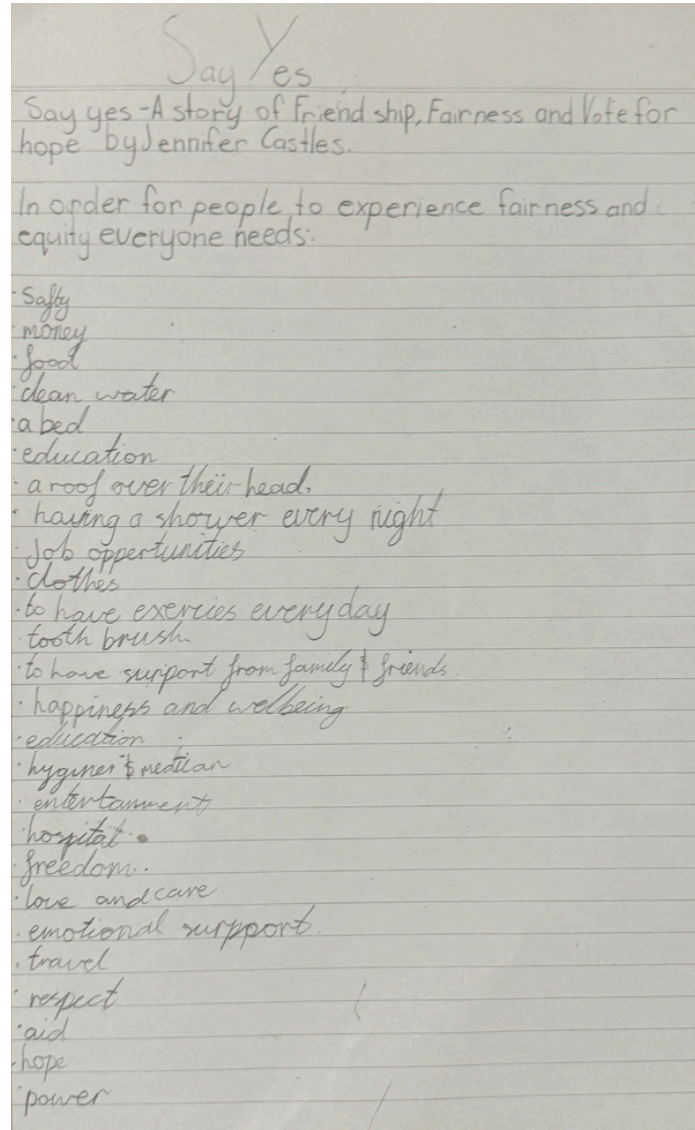 Say Yes
Say yes - A story of Friend ship, Fairness and Vote for
hope by Jennifer Castles.
In order for people to experience fairness and
equity everyone needs:
· Safty
· money
· food
· clean water
· a bed
· education
· a roof over their head.
· having a shower every night
· Job oppertunities
· clothes
· to have exercies everyday
· tooth brush
· to have surport from family & friends.
· happiness and welbeing
· education
· hyginer & medican
· entertainment
· hospital
· freedom.
· love and care
· emotional surpport.
· travel
· respect
· aid
· hope
· power